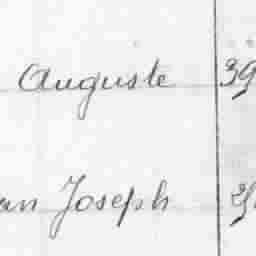 Auguste 39
an Joseph